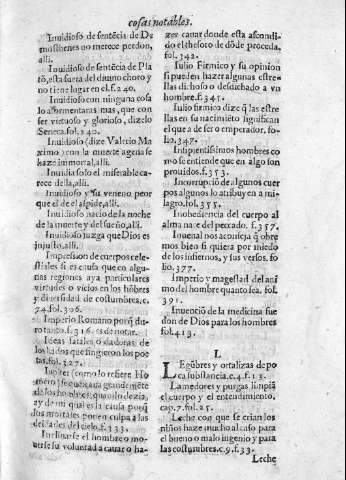 cosas notables.
Inuidioso de sentēcia de De
mosthenes no merece perdon,
alli.
Inuidioso de sentēcia de Pla
tō, esta fuera del diuino choro y
no tiene lugar en el. f. 240.
Inuidioso con ninguna cosa
lo atormentaras mas, que con
ser virtuoso y glorioso, dizelo
Seneca. fol. 240.
Inuidioso (dize Valerio Ma
ximo) con la muerte agena se
haze immortal, alli.
Inuidioso solo el miserable ca
rece della, alli.
Inuidioso y su veneno peor
que el de el aspide, alli.
Inuidioso nacio de la noche
de la muerte y del sueño, alli.
Inuidioso juzga que Dios es
injusto, alli.
Impression de cuerpos celes-
tiales si es causa que en algu-
nas regiones aya particulares
virtudes o vicios en los hōbres
y diuersidad de costumbres, c.
74. fol. 306.
Imperio Romano porq̄ du-
ro tanto. f. 316. es de notar.
Ideas fatales o dadoras de
los hados que fingieron los poe
tas. fol. 327.
Iupiter (como lo refiere Ho
mero) se quexaua grandemēte
de los hombres, quando dezia,
ay de mi qual es la causa porq̄
los mortales ponen culpa a las
deidades del cielo. f. 333.
Inclinarse el hombre o mo-
uerse su voluntad a cauar o ha-
zer cauar donde esta ascondi-
do el thesoro de dōde proceda.
fol. 342.
Iulio Firmico y su opinion
si pueden hazer algunas estre-
llas dichoso o desdichado a vn
hombre. f. 345.
Iulio firmico dize q̄ las estre
llas en su nacimiēto significan
el que a de ser o emperador. fo-
lio. 347.
Insipientissimos hombres co
mo se entiende que en algo son
prouidos. f. 353.
Incorrupciō de algunos cuer
pos algunos lo atribuyen a mi-
lagro. fol. 355.
Inobediencia del cuerpo al
alma nace del peccado. f. 357.
Iuuenal nos aconseja q̄ obre
mos bien si quiera por miedo
de los infiernos, y sus versos. fo
lio. 377.
Imperio y magestad del ani
mo del hombre quanto sea. fol.
391.
Inuenciō de la medicina fue
don de Dios para los hombres
fol. 413.
L
LEgūbres y ortalizas de po
ca substancia. c. 4. f. 15.
Lamedores y purgas limpiā
el cuerpo y el entendimiento.
cap. 7. fol. 25.
Leche con que se crian los
niños haze mucho al caso para
el bueno o malo ingenio y para
las costumbres. c. 9. f. 33.
Leche